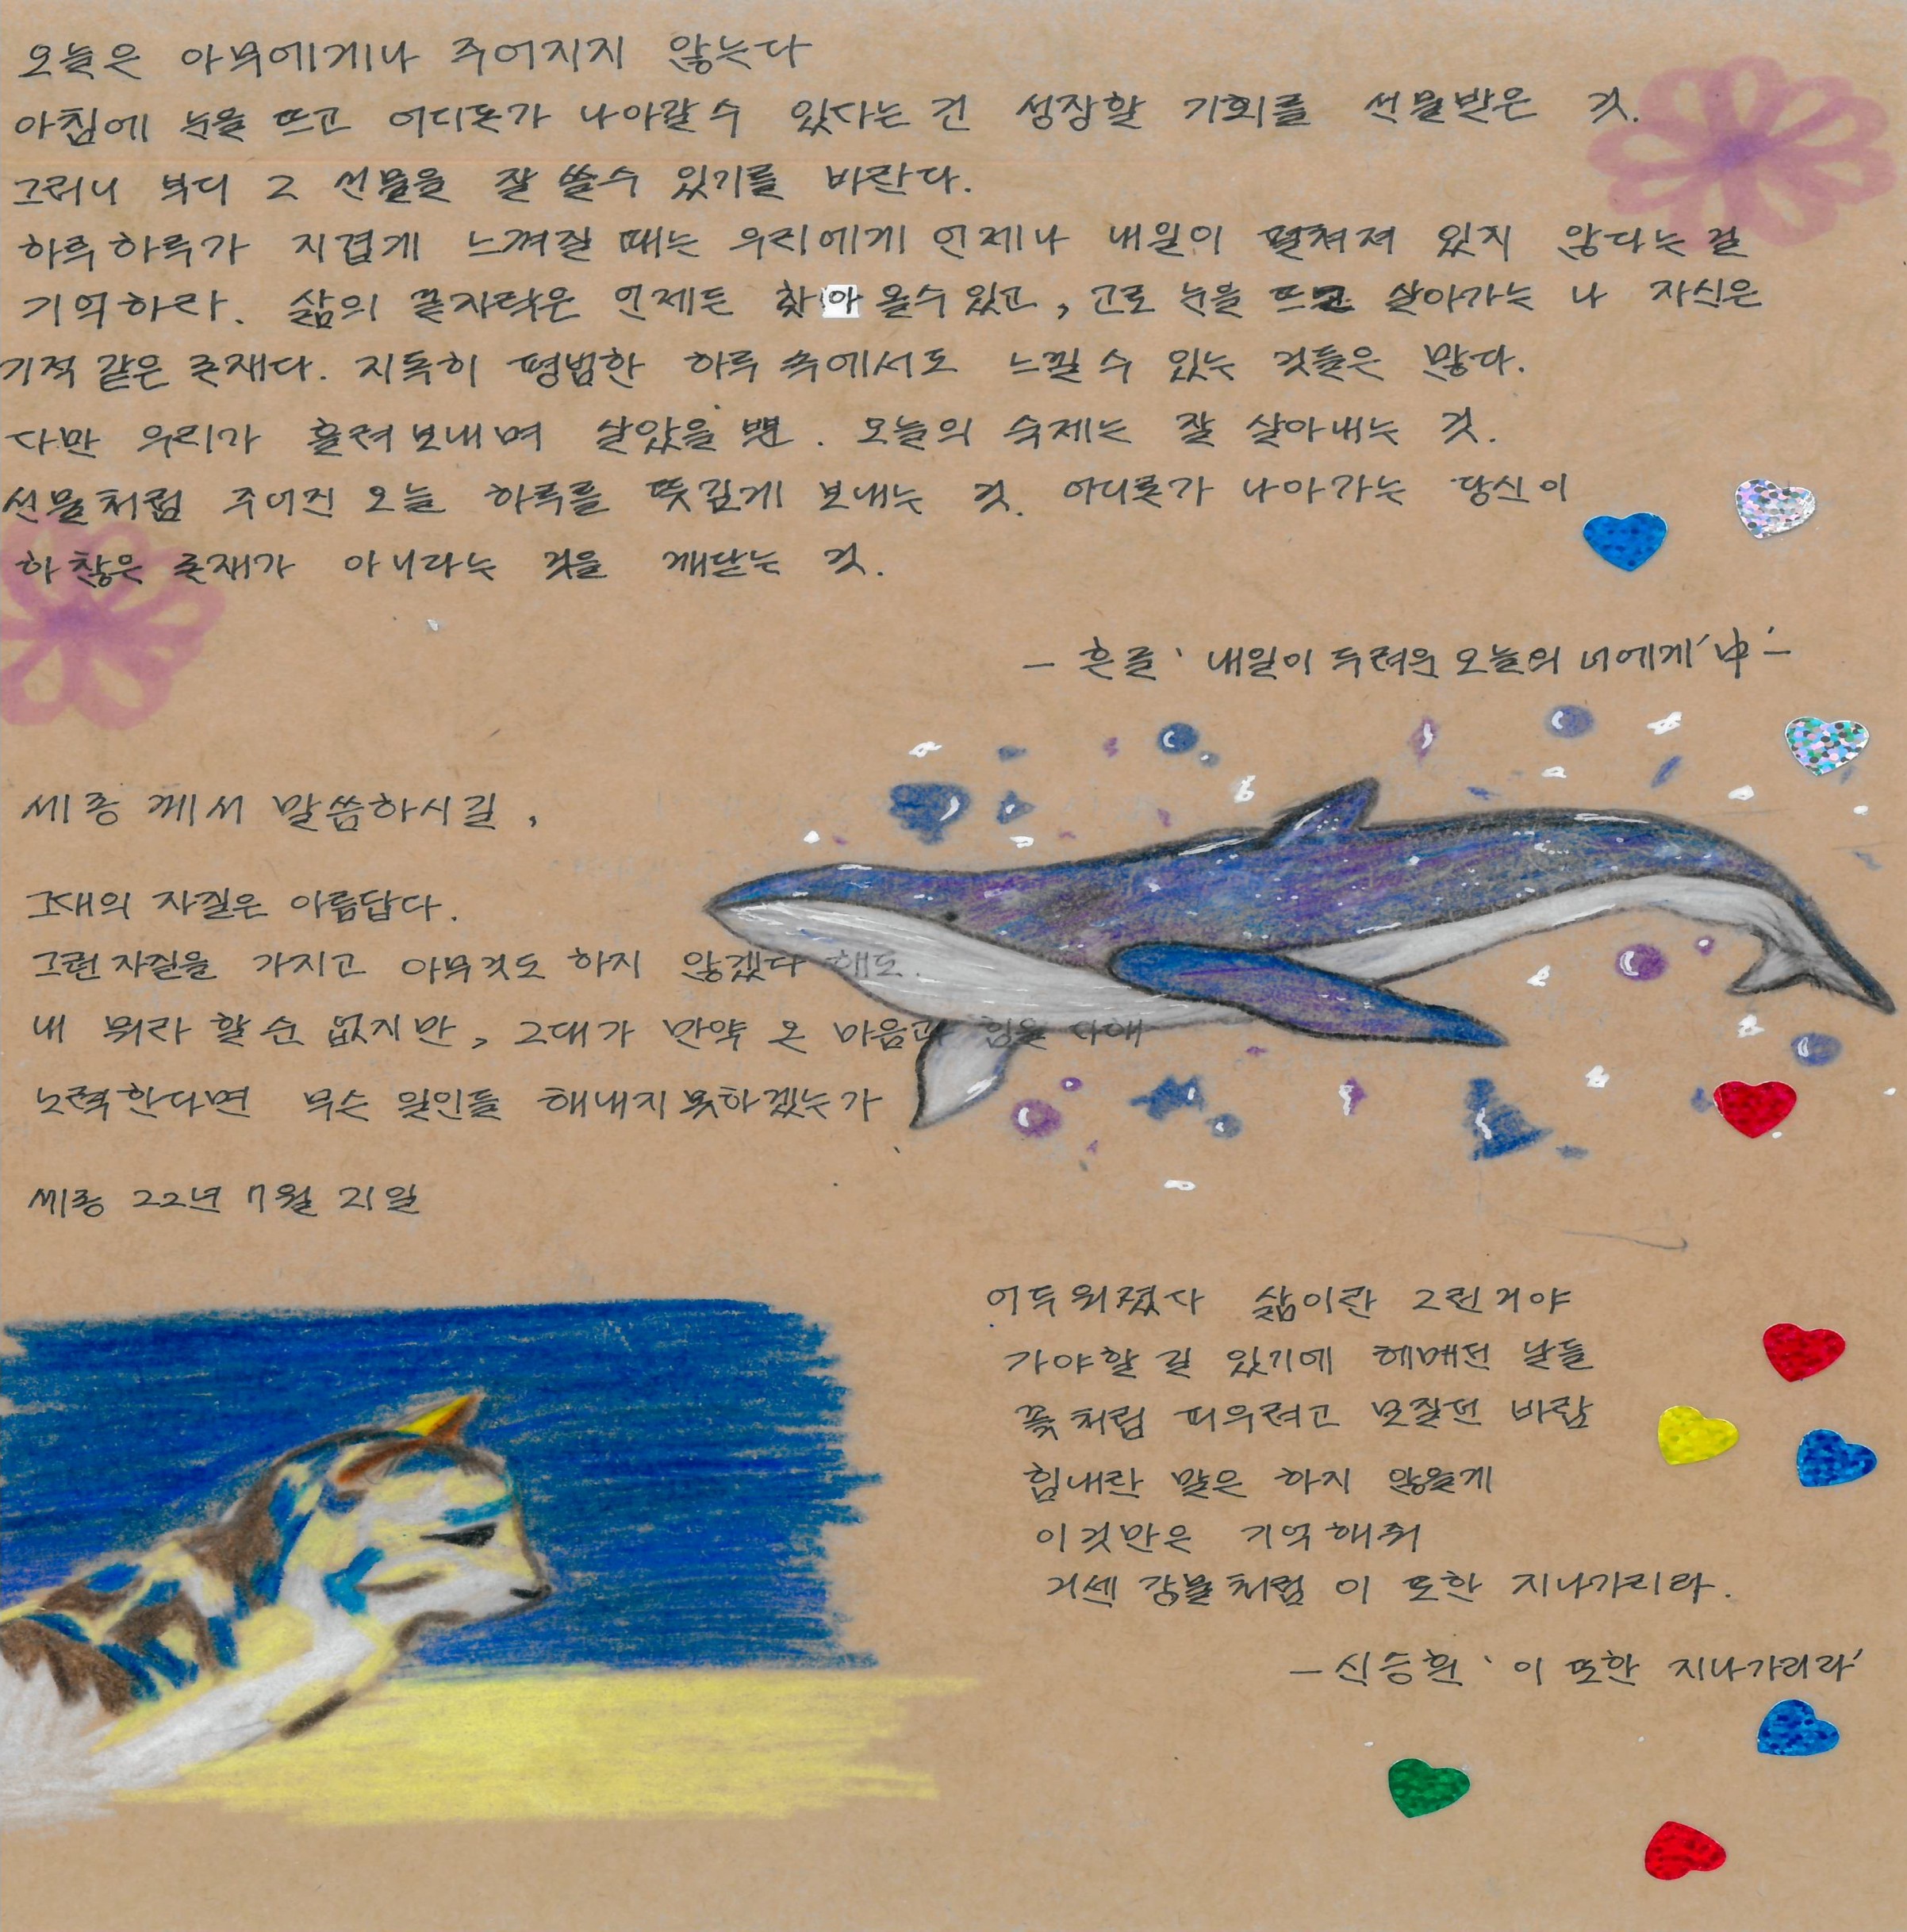 오늘은 아무에게나 주어지지 않는다
아침에 눈을 뜨고 어디론가 나아갈 수 있다는 건 성장할 기회를 선물받은 것.
그러니 부디 그 선물을 잘 쓸수 있기를 바란다.
하루하루가 지겹게 느껴질 때는 우리에게 언제나 내일이 펼쳐져 있지 않다는 걸
기억하라. 삶의 끝자락은 언제든 찾아 올수 있고, 고로 눈을 뜨고 살아가는 나 자신은
기적 같은 존재다. 지독히 평범한 하루 속에서도 느낄 수 있는 것들은 많다.
다만 우리가 흘려보내며 살았을 뿐. 오늘의 숙제는 잘 살아내는 것.
선물처럼 주어진 오늘 하루를 뜻깊게 보내는 것. 어디론가 나아가는 당신이
하찮은 존재가 아니라는 것을 깨닫는 것.
- 흔글 '내일이 두려운 오늘의 너에게' 中 -
세종께서 말씀하시길,
그대의 자질은 아름답다.
그런 자질을 가지고 아무것도 하지 않겠다 해도.
내 뭐라 할 순 없지만, 그대가 만약 온 마음과 힘을 다해
노력한다면 무슨 일인들 해내지 못하겠는가
세종 22년 7월 21일
어두워졌다 삶이란 그런거야
가야할 길 있기에 헤매던 날들
꽃처럼 피우려고 모질던 바람
힘내란 말은 하지 않을게
이것만은 기억해줘
거센 강물처럼 이 또한 지나가리라.
- 신승희 '이 또한 지나가리라'